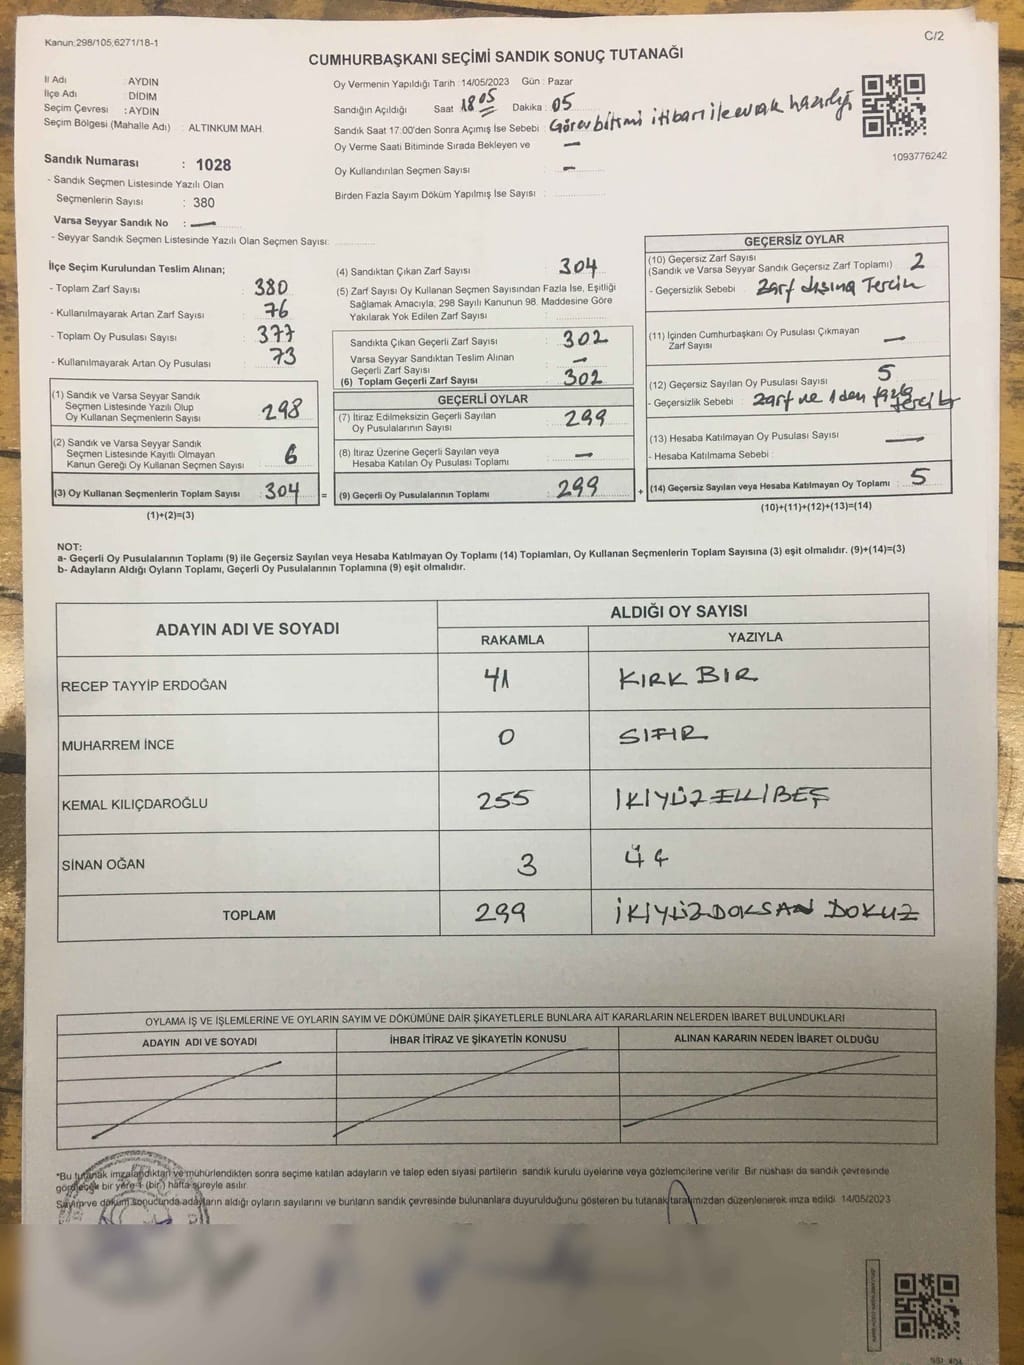 Kanun:298/105,6271/18-1
C/2
CUMHURBAŞKANI SEÇİMİ SANDIK SONUÇ TUTANAĞI
İl Adı : AYDIN
İlçe Adı : DİDİM
Seçim Çevresi : AYDIN
Seçim Bölgesi (Mahalle Adı) : ALTINKUM MAH.
Sandık Numarası : 1028
- Sandık Seçmen Listesinde Yazılı Olan
Seçmenlerin Sayısı : 380
Varsa Seyyar Sandık No : —
- Seyyar Sandık Seçmen Listesinde Yazılı Olan Seçmen Sayısı:
Oy Vermenin Yapıldığı Tarih : 14/05/2023 Gün : Pazar
Sandığın Açıldığı Saat 18 05 Dakika : 05
Sandık Saat 17.00'den Sonra Açımış İse Sebebi : Görev bitimi itibari ile evrak hazırlığı
Oy Verme Saati Bitiminde Sırada Bekleyen ve —
Oy Kullandırılan Seçmen Sayısı : —
Birden Fazla Sayım Döküm Yapılmış İse Sayısı :
1093776242
İlçe Seçim Kurulundan Teslim Alınan;
- Toplam Zarf Sayısı : 380
- Kullanılmayarak Artan Zarf Sayısı : 76
- Toplam Oy Pusulası Sayısı : 377
- Kullanılmayarak Artan Oy Pusulası : 73
(1) Sandık ve Varsa Seyyar Sandık
Seçmen Listesinde Yazılı Olup
Oy Kullanan Seçmenlerin Sayısı : 298
(2) Sandık ve Varsa Seyyar Sandık
Seçmen Listesinde Kayıtlı Olmayan
Kanun Gereği Oy Kullanan Seçmen Sayısı : 6
(3) Oy Kullanan Seçmenlerin Toplam Sayısı : 304 =
(1)+(2)=(3)
(4) Sandıktan Çıkan Zarf Sayısı : 304
(5) Zarf Sayısı Oy Kullanan Seçmen Sayısından Fazla İse, Eşitliği
Sağlamak Amacıyla, 298 Sayılı Kanunun 98. Maddesine Göre
Yakılarak Yok Edilen Zarf Sayısı :
Sandıkta Çıkan Geçerli Zarf Sayısı : 302
Varsa Seyyar Sandıktan Teslim Alınan
Geçerli Zarf Sayısı : —
(6) Toplam Geçerli Zarf Sayısı : 302
GEÇERLİ OYLAR
(7) İtiraz Edilmeksizin Geçerli Sayılan
Oy Pusulalarının Sayısı : 299
(8) İtiraz Üzerine Geçerli Sayılan veya
Hesaba Katılan Oy Pusulası Toplamı : —
(9) Geçerli Oy Pusulalarının Toplamı : 299 +
GEÇERSİZ OYLAR
(10) Geçersiz Zarf Sayısı
(Sandık ve Varsa Seyyar Sandık Geçersiz Zarf Toplamı) : 2
- Geçersizlik Sebebi : Zarf dışına Tercih
(11) İçinden Cumhurbaşkanı Oy Pusulası Çıkmayan
Zarf Sayısı : —
(12) Geçersiz Sayılan Oy Pusulası Sayısı : 5
- Geçersizlik Sebebi : Zarf ve 1 den fazla tercih
(13) Hesaba Katılmayan Oy Pusulası Sayısı : —
- Hesaba Katılmama Sebebi :
(14) Geçersiz Sayılan veya Hesaba Katılmayan Oy Toplamı : 5
(10)+(11)+(12)+(13)=(14)
NOT:
a- Geçerli Oy Pusulalarının Toplamı (9) ile Geçersiz Sayılan veya Hesaba Katılmayan Oy Toplamı (14) Toplamları, Oy Kullanan Seçmenlerin Toplam Sayısına (3) eşit olmalıdır. (9)+(14)=(3)
b- Adayların Aldığı Oyların Toplamı, Geçerli Oy Pusulalarının Toplamına (9) eşit olmalıdır.
ADAYIN ADI VE SOYADI
ALDIĞI OY SAYISI
RAKAMLA YAZIYLA
RECEP TAYYİP ERDOĞAN 41 KIRK BİR
MUHARREM İNCE 0 SIFIR
KEMAL KILIÇDAROĞLU 255 İKİYÜZELLİBEŞ
SİNAN OĞAN 3 ÜÇ
TOPLAM 299 İKİYÜZDOKSAN DOKUZ
OYLAMA İŞ VE İŞLEMLERİNE VE OYLARIN SAYIM VE DÖKÜMÜNE DAİR ŞİKAYETLERLE BUNLARA AİT KARARLARIN NELERDEN İBARET BULUNDUKLARI
ADAYIN ADI VE SOYADI İHBAR İTİRAZ VE ŞİKAYETİN KONUSU ALINAN KARARIN NEDEN İBARET OLDUĞU
*Bu tutanak imzalandıktan ve mühürlendikten sonra seçime katılan adayların ve talep eden siyasi partilerin sandık kurulu üyelerine veya gözlemcilerine verilir. Bir nüshası da sandık çevresinde
görülecek bir yere 1 (bir) hafta süreyle asılır.
Sayım ve döküm sonucunda adayların aldığı oyların sayılarını ve bunların sandık çevresinde bulunanlara duyurulduğunu gösteren bu tutanak tarafımızdan düzenlenerek imza edildi. 14/05/2023